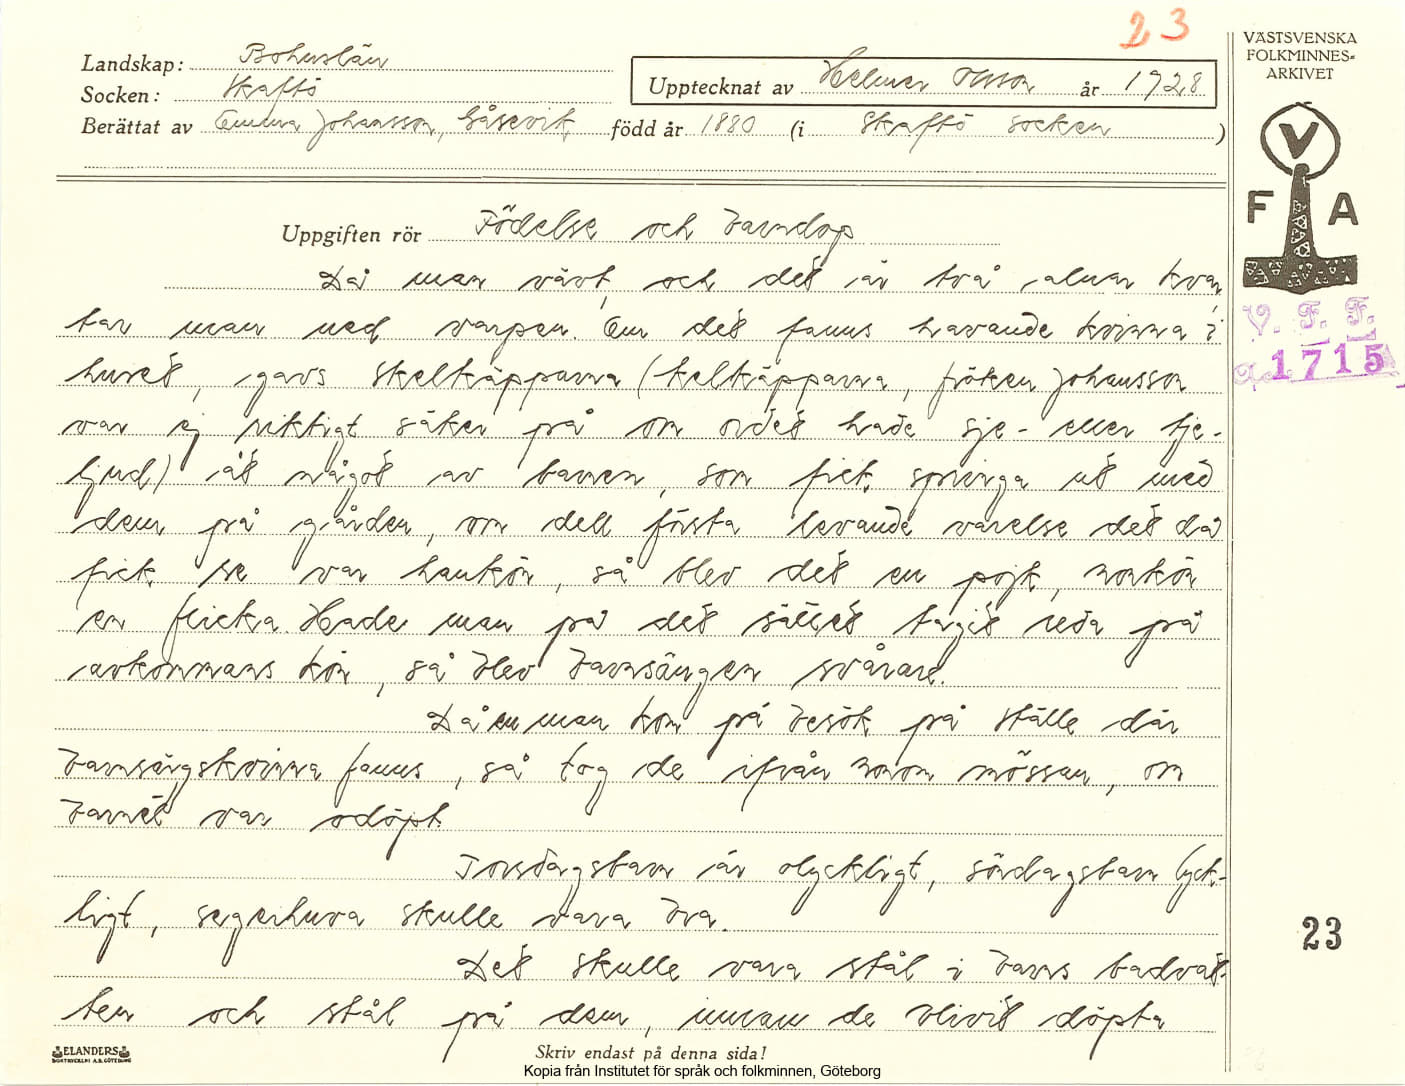 23
Landskap: Bohuslän
Socken: Skaftö
Upptecknat av Helmer Olsson år 1928
Berättat av Emma Johansson, Gåsevik, född år 1880 (i Skaftö socken )
VÄSTSVENSKA
FOLKMINNES=
ARKIVET
V
F A
V. F. F.
1715
Uppgiften rör Födelse och barndop
Då man vävt, och det är två alnar kvar
tar man ned varpen. Om det fanns havande kvinna i
huset, gavs skelkäpparna (-kelkäpparna, fröken Johansson
var ej riktigt säker på om ordet hade sje- eller tje-
ljud) åt något av barnen, som fick springa ut med
dem på gården, om dell första levande varelse det då
fick se var hankön, så blev det en pojk, honkön
en flicka. Hade man på det sättet tagit reda på
avkommans kön, så blev barnsängen svårare.
Då en man kom på besök på ställe där
barnsängskvinna fanns, så tog de ifrån honom mössan, om
barnet var odöpt.
Torsdagsbarn är olyckligt, söndagsbarn lyck-
ligt, segerhuva skulle vara bra.
Det skulle vara stål i barns badvat-
ten och stål på dem, innan de blivit döpta
23
ELANDERS
BOKTRYCKERI A.B. GÖTEBORG
Skriv endast på denna sida!
Kopia från Institutet för språk och folkminnen, Göteborg